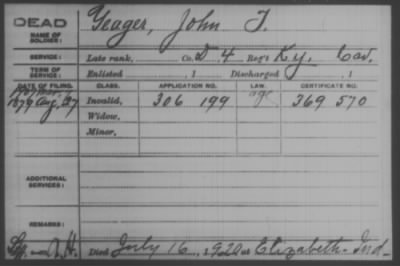 DEAD
NAME OF SOLDIER: Yeager, John T.
SERVICE: Late rank, Co. D, 4 Reg't Ky. Cav.
TERM OF SERVICE: Enlisted , 1 Discharged , 1
DATE OF FILING. CLASS. APPLICATION NO. LAW. CERTIFICATE NO.
1879 Aug. 27 Invalid, 306 199 age 369 570
Widow,
Minor,
ADDITIONAL SERVICES:
REMARKS:
Died July 16, 1920 at Elizabeth - Ind.